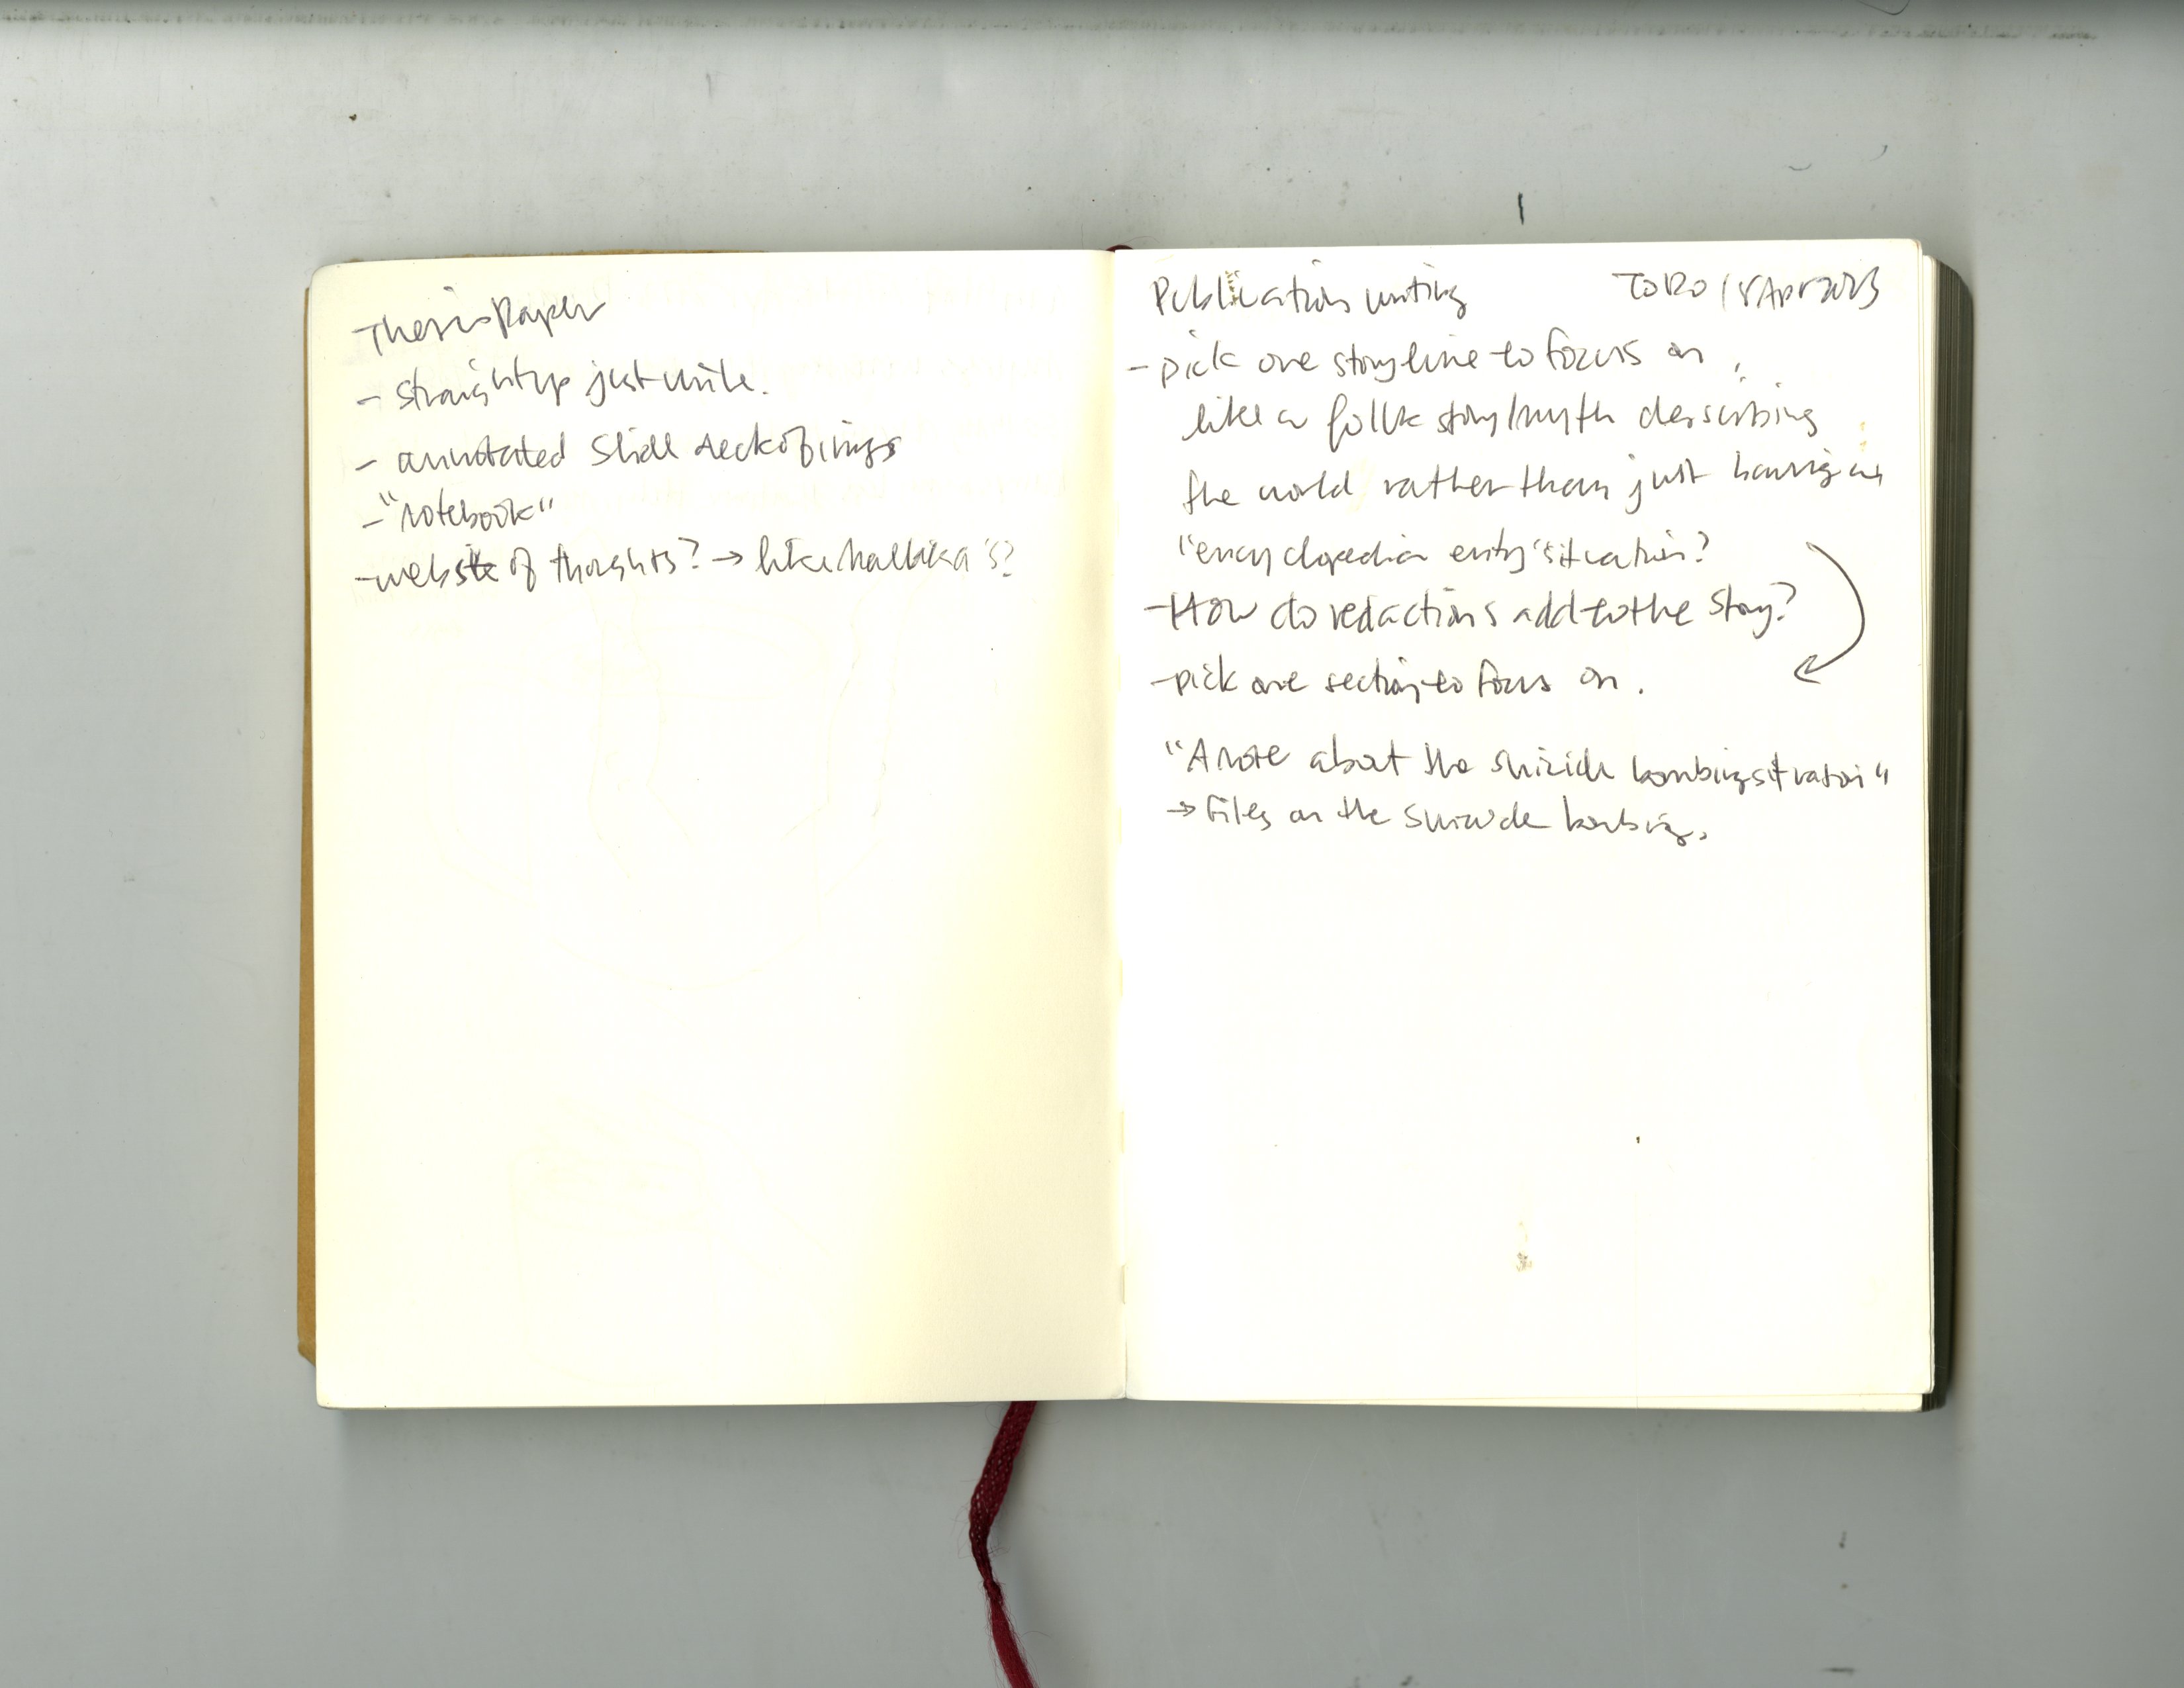 Thesis Paper
- straight up just write.
- annotated slide deck of imgs
- "notebook"
- website of thoughts? → like Mallika's?
Publication writing TODO 18 Apr 2023
- pick one storyline to focus on,
like a folk story/myth describing
the world rather than just having an
"encyclopedia entry" situation?
- How do redactions add to the story?
- pick one section to focus on.
"A note about the suicide bombing situation"
→ Files on the suicide bombing.